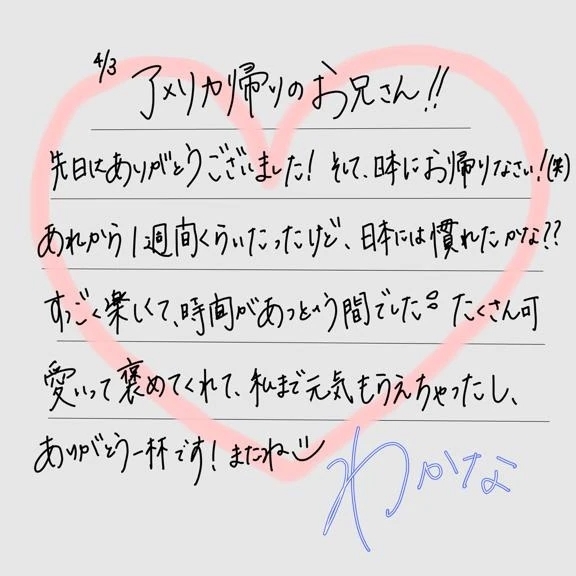 4/3
アメリカ帰りのお兄さん!!
先日はありがとうございました! そして、日本にお帰りなさい!(笑)
あれから1週間くらいたったけど、日本には慣れたかな??
すっごく楽しくて、時間があっという間でした。 たくさん可
愛いって褒めてくれて、私まで元気もらえちゃったし、
ありがとう一杯です! またね
わかな